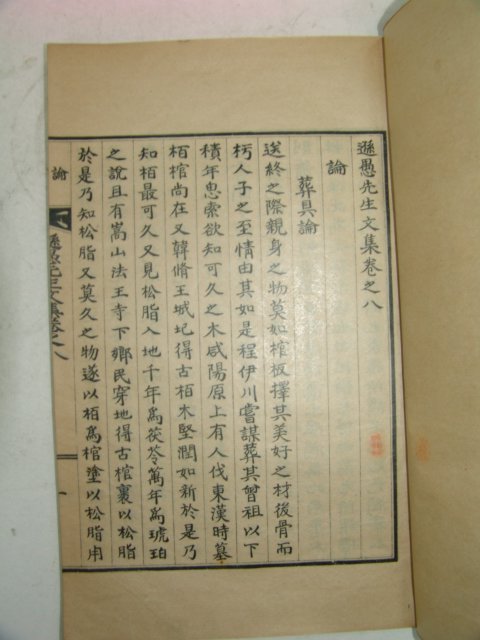 遜愚先生文集卷之八
論
葬具論
送終之際親身之物莫如棺板擇其美好之材後骨而
朽人子之至情由其如是程伊川嘗謀葬其曾祖以下
積年思索欲知可久之木咸陽原上有人伐東漢時墓
栢棺尚在又韓脩王城圮得古栢木堅潤如新於是乃
知栢最可久又見松脂入地千年爲茯苓萬年爲琥珀
之說且有嵩山法王寺下鄕民穿地得古棺裹以松脂
於是乃知松脂又莫久之物遂以栢爲棺塗以松脂用
論
遜愚先生文集卷之八
一